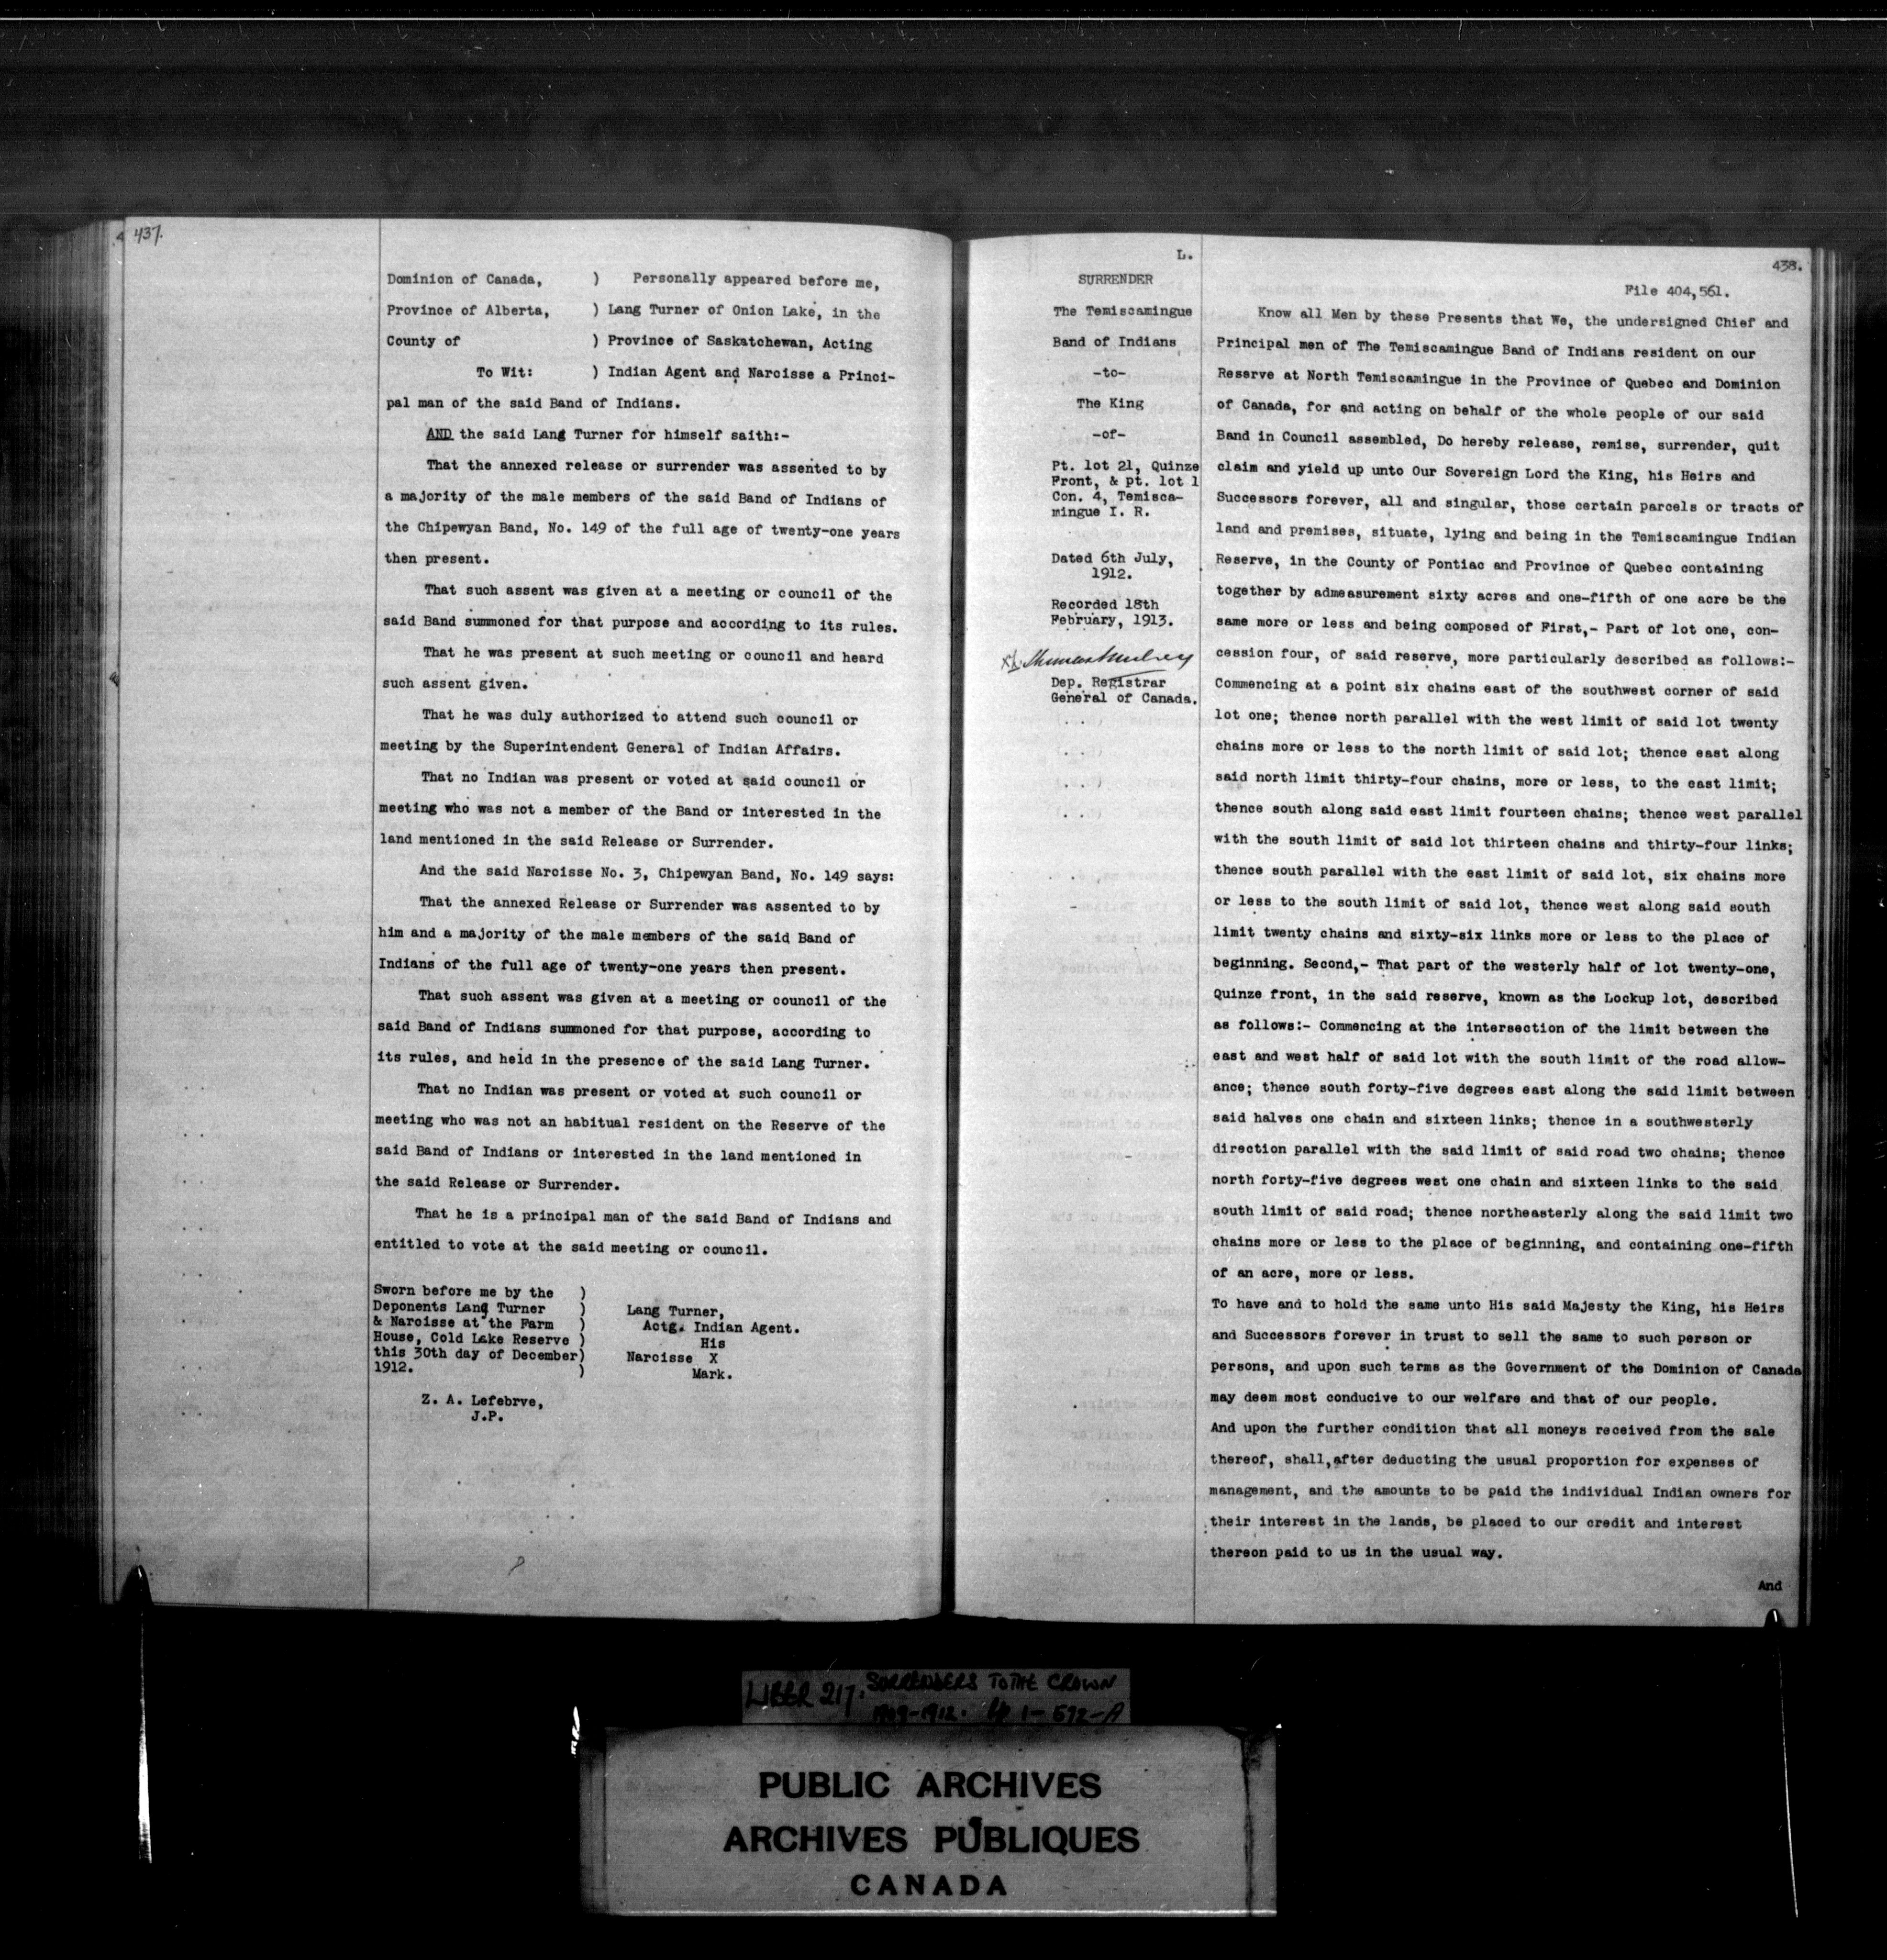 437.
Dominion of Canada, ) Personally appeared before me,
Province of Alberta, ) Lang Turner of Onion Lake, in the
County of ) Province of Saskatchewan, Acting
To Wit: ) Indian Agent and Narcisse a Princi-
pal man of the said Band of Indians.
AND the said Lang Turner for himself saith:-
That the annexed release or surrender was assented to by
a majority of the male members of the said Band of Indians of
the Chipewyan Band, No. 149 of the full age of twenty-one years
then present.
That such assent was given at a meeting or council of the
said Band summoned for that purpose and according to its rules.
That he was present at such meeting or council and heard
such assent given.
That he was duly authorized to attend such council or
meeting by the Superintendent General of Indian Affairs.
That no Indian was present or voted at said council or
meeting who was not a member of the Band or interested in the
land mentioned in the said Release or Surrender.
And the said Narcisse No. 3, Chipewyan Band, No. 149 says:
That the annexed Release or Surrender was assented to by
him and a majority of the male members of the said Band of
Indians of the full age of twenty-one years then present.
That such assent was given at a meeting or council of the
said Band of Indians summoned for that purpose, according to
its rules, and held in the presence of the said Lang Turner.
That no Indian was present or voted at such council or
meeting who was not an habitual resident on the Reserve of the
said Band of Indians or interested in the land mentioned in
the said Release or Surrender.
That he is a principal man of the said Band of Indians and
entitled to vote at the said meeting or council.
Sworn before me by the )
Deponents Lang Turner ) Lang Turner,
& Narcisse at the Farm ) Actg. Indian Agent.
House, Cold Lake Reserve ) His
this 30th day of December) Narcisse X
1912. ) Mark.
Z. A. Lefebrve,
J.P.
L.
SURRENDER
The Temiscamingue
Band of Indians
-to-
The King
-of-
Pt. lot 21, Quinze
Front, & pt. lot 1
Con. 4, Temisca-
mingue I. R.
Dated 6th July,
1912.
Recorded 18th
February, 1913.
Dep. Registrar
General of Canada.
438.
File 404,561.
Know all Men by these Presents that We, the undersigned Chief and
Principal men of The Temiscamingue Band of Indians resident on our
Reserve at North Temiscamingue in the Province of Quebec and Dominion
of Canada, for and acting on behalf of the whole people of our said
Band in Council assembled, Do hereby release, remise, surrender, quit
claim and yield up unto Our Sovereign Lord the King, his Heirs and
Successors forever, all and singular, those certain parcels or tracts of
land and premises, situate, lying and being in the Temiscamingue Indian
Reserve, in the County of Pontiac and Province of Quebec containing
together by admeasurement sixty acres and one-fifth of one acre be the
same more or less and being composed of First,- Part of lot one, con-
cession four, of said reserve, more particularly described as follows:-
Commencing at a point six chains east of the southwest corner of said
lot one; thence north parallel with the west limit of said lot twenty
chains more or less to the north limit of said lot; thence east along
said north limit thirty-four chains, more or less, to the east limit;
thence south along said east limit fourteen chains; thence west parallel
with the south limit of said lot thirteen chains and thirty-four links;
thence south parallel with the east limit of said lot, six chains more
or less to the south limit of said lot, thence west along said south
limit twenty chains and sixty-six links more or less to the place of
beginning. Second,- That part of the westerly half of lot twenty-one,
Quinze front, in the said reserve, known as the Lockup lot, described
as follows:- Commencing at the intersection of the limit between the
east and west half of said lot with the south limit of the road allow-
ance; thence south forty-five degrees east along the said limit between
said halves one chain and sixteen links; thence in a southwesterly
direction parallel with the said limit of said road two chains; thence
north forty-five degrees west one chain and sixteen links to the said
south limit of said road; thence northeasterly along the said limit two
chains more or less to the place of beginning, and containing one-fifth
of an acre, more or less.
To have and to hold the same unto His said Majesty the King, his Heirs
and Successors forever in trust to sell the same to such person or
persons, and upon such terms as the Government of the Dominion of Canada
may deem most conducive to our welfare and that of our people.
And upon the further condition that all moneys received from the sale
thereof, shall,after deducting the usual proportion for expenses of
management, and the amounts to be paid the individual Indian owners for
their interest in the lands, be placed to our credit and interest
thereon paid to us in the usual way.
And
LIBER 217. SURRENDERS TO THE CROWN
1909-1912. pp 1-592-A
PUBLIC ARCHIVES
ARCHIVES PUBLIQUES
CANADA